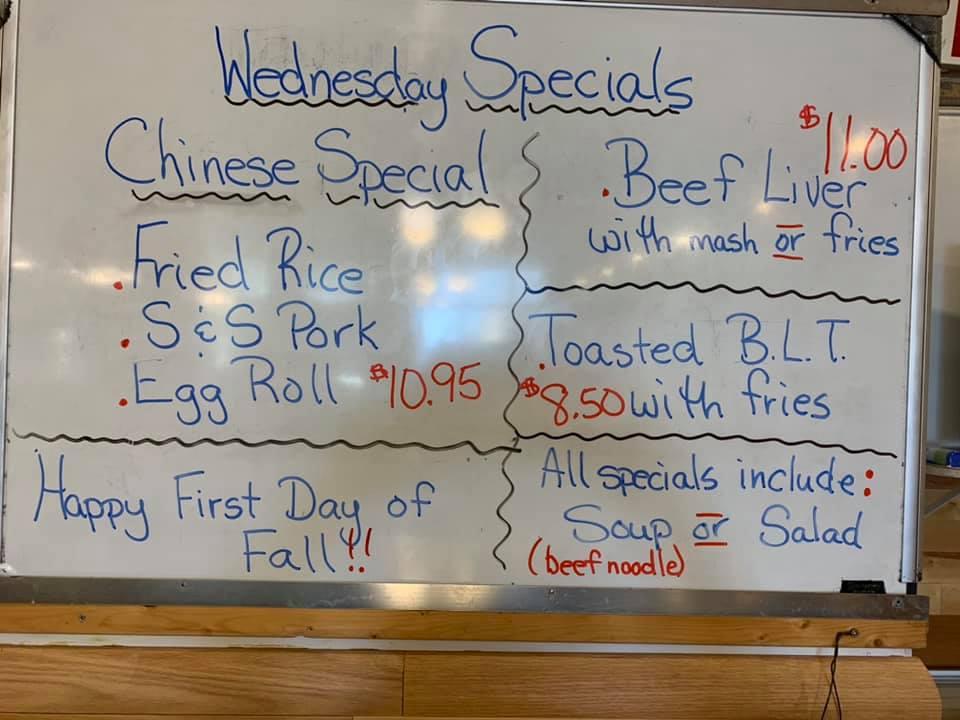 Wednesday Specials
Chinese Special
. Fried Rice
. S & S Pork
. Egg Roll $10.95
Happy First Day of
Fall!!
$11.00
. Beef Liver
with mash or fries
. Toasted B.L.T.
$8.50 with fries
All specials include:
Soup or Salad
(beef noodle)